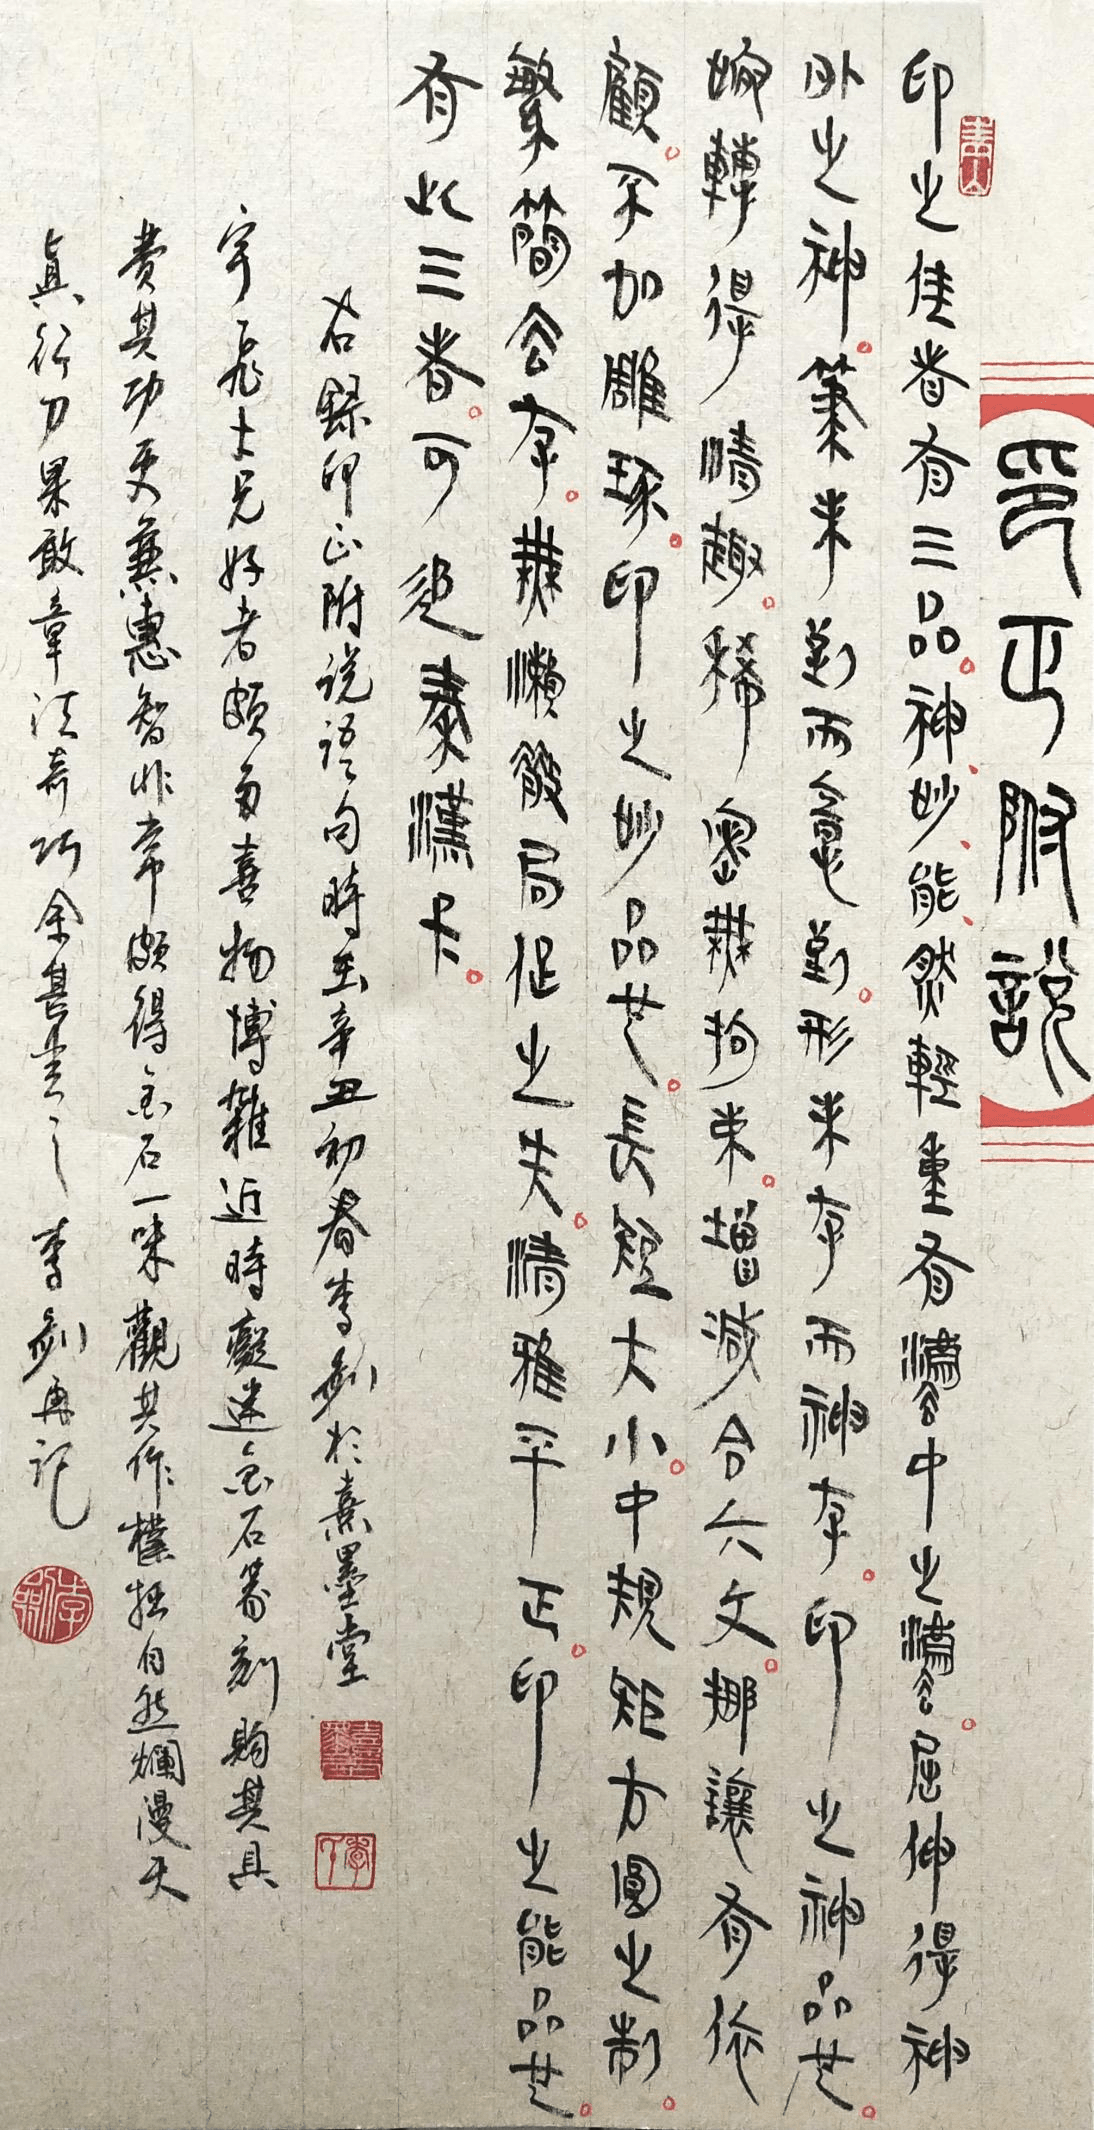 印正附说
印之佳者有三品。神、妙、能、然轻重有法中之法。屈伸得神
外之神。筆未到而意到。形未存而神存。印之神品也。
婉轉得情趣。稀密無拘束。增減合六文。挪讓有依
顧。不加雕琢。印之妙品也。長短大小。中規矩方圓之制。
繁簡去存。無懶散局促之失。清雅平正。印之能品也。
有此三者。可追秦漢矣。
右録印正附说語句時在辛丑初春李剑於熹墨堂
宇飛士兄好者頗多喜物博雜近時癡迷金石篆刻夠其具
費其功更兼惠智非常頗得金石一味觀其作樸拙自然爛漫天
真行刀果敢章法奇巧余甚赏之 李剑再记